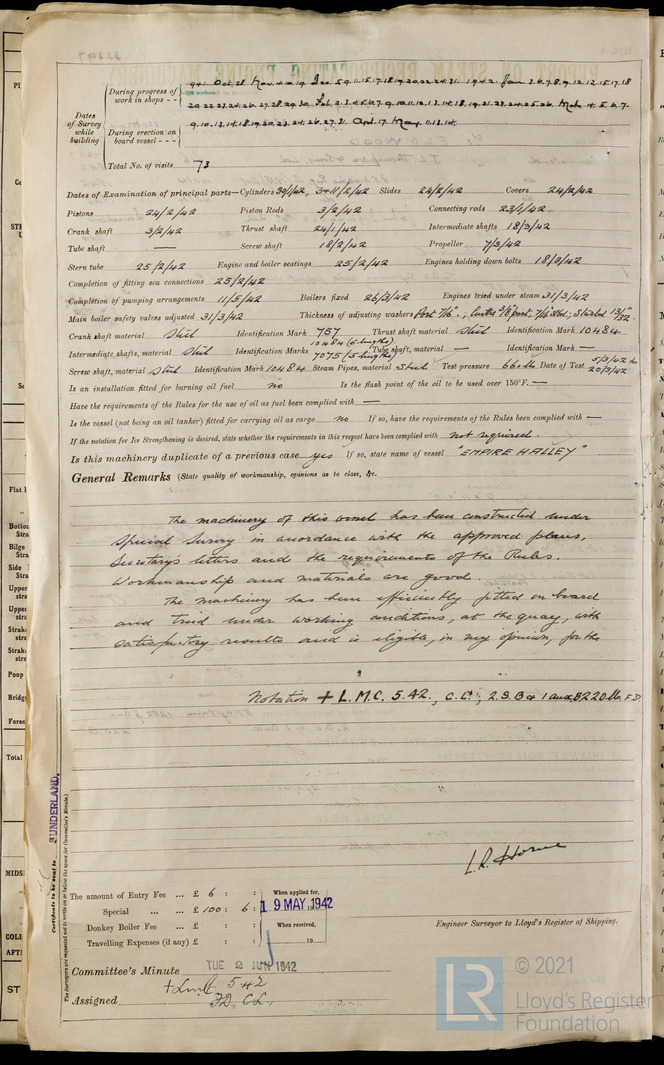 Dates of Survey while building
During progress of work in shops - -
1941 Oct. 28 Nov. 4. 10. 19 Dec. 5. 9. 11. 15. 17. 18. 19. 20. 22. 24. 31. 1942 Jan 3. 6. 7. 8. 9. 12. 13. 15. 17. 18
20. 22. 23. 24. 26. 27. 28. 29. 30. Feb. 2. 3. 4. 5. 6. 7. 9. 10. 11. 12. 13. 14. 18. 19. 21. 23. 24. 25. 26. Mch 4. 5. 6. 7.
During erection on board vessel - - -
9. 10. 13. 14. 18. 19. 20. 23. 24. 26. 27. 31. Apl. 17. May. 11. 13. 14.
Total No. of visits 73
Dates of Examination of principal parts—Cylinders 30/1/42, 3+11/2/42 Slides 24/2/42 Covers 24/2/42
Pistons 24/2/42 Piston Rods 3/2/42 Connecting rods 23/1/42
Crank shaft 3/2/42 Thrust shaft 24/1/42 Intermediate shafts 18/3/42
Tube shaft — Screw shaft 18/2/42 Propeller 7/3/42
Stern tube 25/2/42 Engine and boiler seatings 25/2/42 Engines holding down bolts 18/3/42
Completion of fitting sea connections 25/2/42
Completion of pumping arrangements 11/5/42 Boilers fixed 26/3/42 Engines tried under steam 31/3/42
Main boiler safety valves adjusted 31/3/42 Thickness of adjusting washers Port 7/16"; Centre 3/8" port, 7/16 stbd; Starbd 13/32"
Crank shaft material Steel Identification Mark 757 Thrust shaft material Steel Identification Mark 10484
Intermediate shafts, material Steel Identification Marks 10484 (5 lengths) 7075 (5 lengths) Tube shaft, material — Identification Mark —
Screw shaft, material Steel Identification Mark 10484 Steam Pipes, material Steel Test pressure 660 lb Date of Test 5/3/42 to 20/3/42
Is an installation fitted for burning oil fuel no Is the flash point of the oil to be used over 150°F. —
Have the requirements of the Rules for the use of oil as fuel been complied with —
Is the vessel (not being an oil tanker) fitted for carrying oil as cargo no If so, have the requirements of the Rules been complied with —
If the notation for Ice Strengthening is desired, state whether the requirements in this respect have been complied with not required.
Is this machinery duplicate of a previous case yes If so, state name of vessel "EMPIRE HALLEY"
General Remarks (State quality of workmanship, opinions as to class, &c.
The machinery of this vessel has been constructed under
Special Survey in accordance with the approved plans,
Secretary's letters and the requirements of the Rules.
Workmanship and materials are good.
The machinery has been efficiently fitted on board
and tried under working conditions, at the quay, with
satisfactory results and is eligible, in my opinion, for the
Notation + L.M.C. 5.42., C.L., 2.S.B & 1 aux B 220 lb. F.D.
SUNDERLAND.
Certificate to be sent to
The Surveyors are requested not to write on or below the space for Committee's Minute.
L. R. Horne
Engineer Surveyor to Lloyd's Register of Shipping.
The amount of Entry Fee ... £ 6 : :
Special ... ... £ 100 : 6 :
Donkey Boiler Fee ... £ : :
Travelling Expenses (if any) £ : :
When applied for,
19 MAY 1942
When received,
19
Committee's Minute TUE 2 JUN 1942
Assigned + Lmc 5.42
FD, CL.
© 2021
LR
Lloyd's Register
Foundation